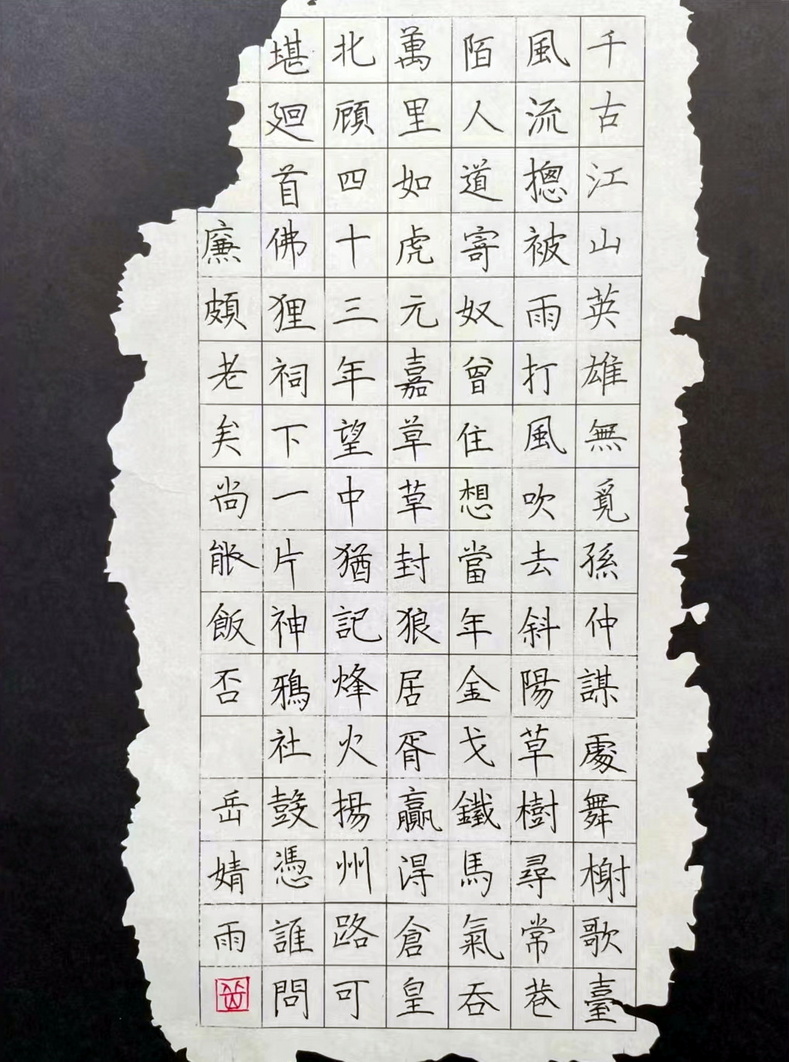 千古江山英雄無覓孫仲謀處舞榭歌臺
風流摠被雨打風吹去斜陽草樹尋常巷
陌人道寄奴曾住想當年金戈鐵馬氣吞
萬里如虎元嘉草草封狼居胥贏淂倉皇
北頋四十三年望中猶記烽火揚州路可
堪廻首佛狸祠下一片神鴉社鼓憑誰問
廉頗老矣尚能飯否 岳婧雨